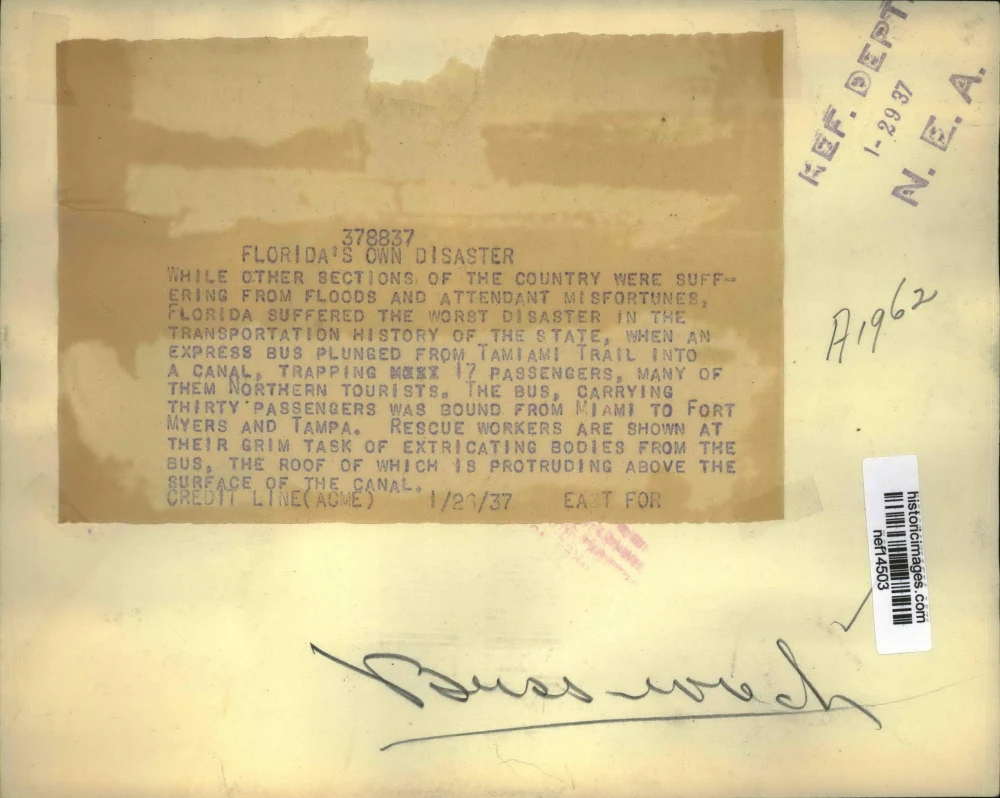 378837
FLORIDA'S OWN DISASTER
WHILE OTHER SECTIONS OF THE COUNTRY WERE SUFF-
ERING FROM FLOODS AND ATTENDANT MISFORTUNES,
FLORIDA SUFFERED THE WORST DISASTER IN THE
TRANSPORTATION HISTORY OF THE STATE, WHEN AN
EXPRESS BUS PLUNGED FROM TAMIAMI TRAIL INTO
A CANAL, TRAPPING 17 PASSENGERS, MANY OF
THEM NORTHERN TOURISTS. THE BUS, CARRYING
THIRTY PASSENGERS WAS BOUND FROM MIAMI TO FORT
MYERS AND TAMPA. RESCUE WORKERS ARE SHOWN AT
THEIR GRIM TASK OF EXTRICATING BODIES FROM THE
BUS, THE ROOF OF WHICH IS PROTRUDING ABOVE THE
SURFACE OF THE CANAL.
CREDIT LINE(ACME) 1/26/37 EAST FOR
REF. DEPT.
1-29 37
N. E. A.
A1962
historicimages.com
nef14503
Buss-wreck